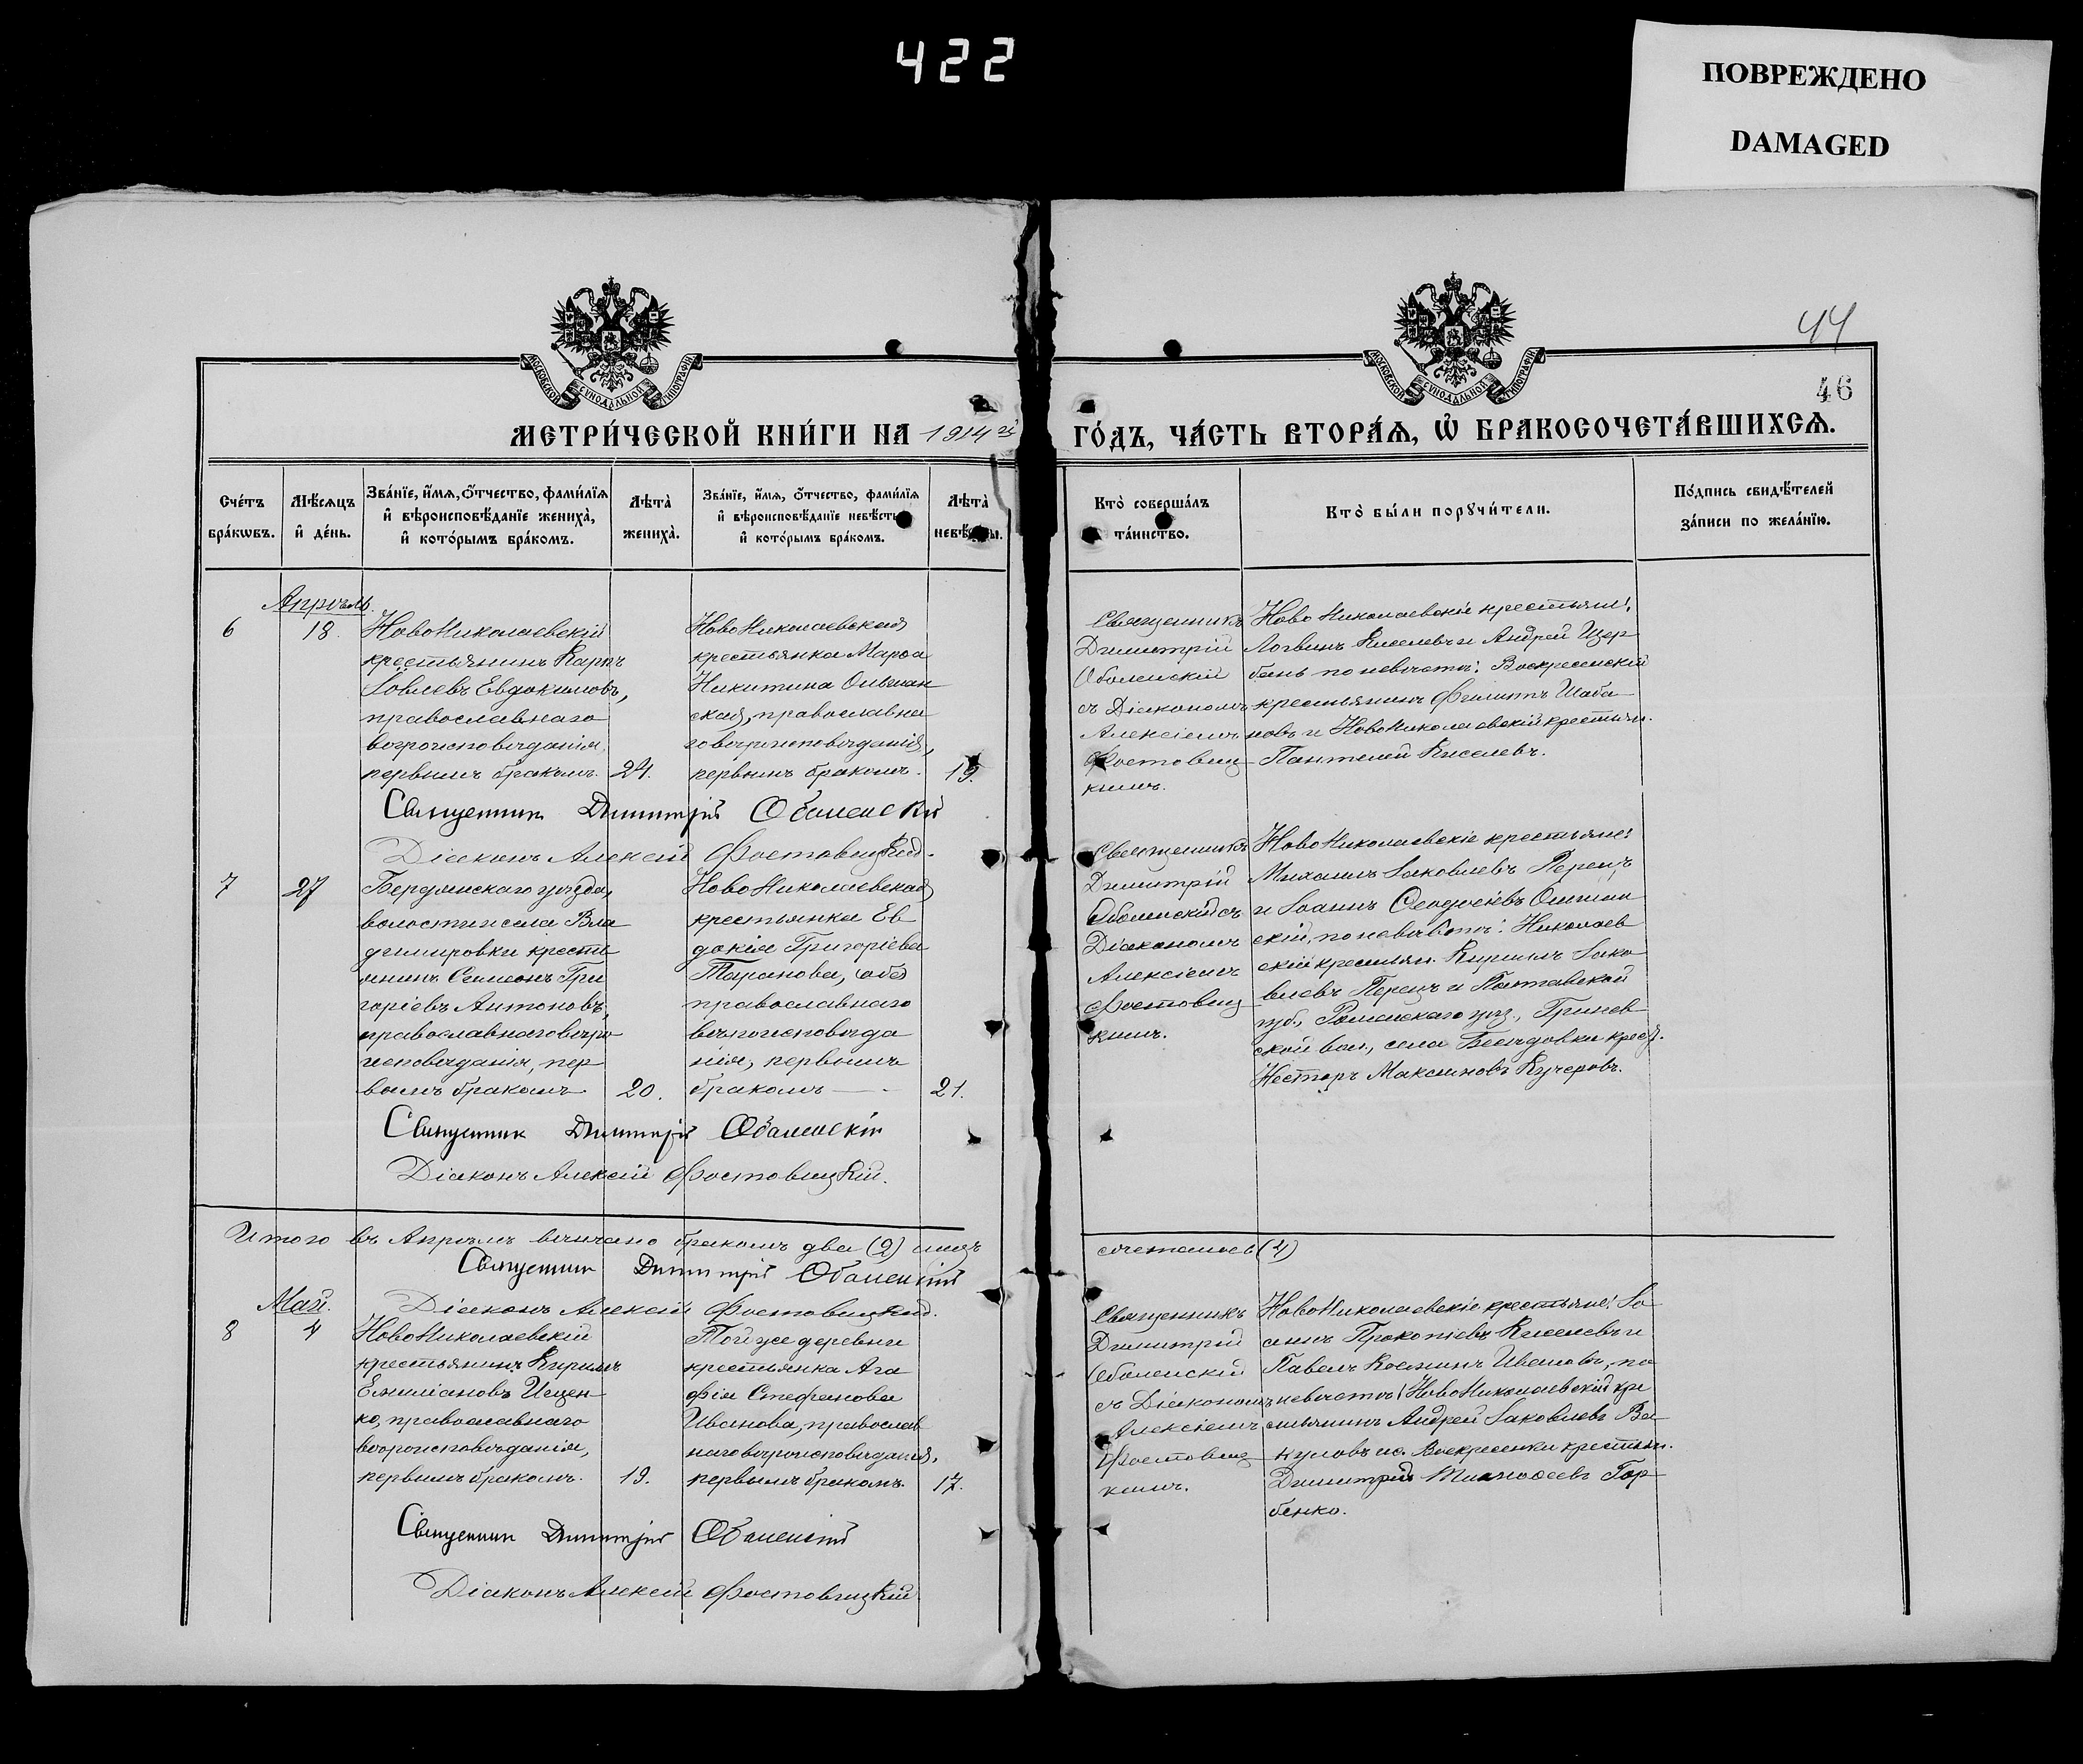 422
ПОВРЕЖДЕНО
DAMAGED
44
46
МОСКОВСКОЙ СѴНОДАЛЬНОЙ ТИПОГРАФІИ
МОСКОВСКОЙ СѴНОДАЛЬНОЙ ТИПОГРАФІИ
МЕТРИ́ЧЕСКОЙ КНИ́ГИ НА 1914й
ГО́ДЪ, ЧА́СТЬ ВТОРА́Ѧ, Ѡ҆ БРАКОСОЧЕТА́ВШИХСѦ.
Сче́тъ бра́кѡвъ.
Мѣ́сѧцъ и҆ де́нь.
Зва́нїе, и҆́мѧ, ѻ҆́тчество, фами́лїѧ и҆ вѣроисповѣ́данїе жениха̀, и҆ кото́рымъ бра́комъ.
Лѣта̀ жениха̀.
Зва́нїе, и҆́мѧ, ѻ҆́тчество, фами́лїѧ и҆ вѣроисповѣ́данїе невѣ́сты и҆ кото́рымъ бра́комъ.
Лѣта̀ невѣ́сты.
Кто̀ соверша́лъ та́инство.
Кто̀ бы́ли порꙋчи́тели.
По́дпись свидѣ́телей за́писи по жела́нїю.
Апрѣль.
6
18.
НовоНиколаевскій
крестьянинъ Карпъ
Іовлевъ Евдокимовъ,
православнаго
вѣроисповѣданія,
первымъ бракомъ.
24.
НовоНиколаевская
крестьянка Марѳа
Никитина Ольшан
ская, православна
го вѣроисповѣданія,
первымъ бракомъ.
19.
Священникъ
Димитрій
Оболенскій
съ Діакономъ
Алексіемъ
Фостовиц
кимъ.
Ново Николаевскіе крестьяне:
Логвинъ Киселевъ и Андрей Щер
бань по невѣстѣ: Воскресенскій
крестьянинъ Филиппъ Шаба
новъ и НовоНиколаевскій крестьян.
Пантелей Киселевъ.
Священникъ Димитрій Оболенскій
Діаконъ Алексій Фостовицкій.
7
27
Бердянскаго уѣзда,
волости и села Вла
димировки кресть
янинъ Симеонъ Гри
горіевъ Антоновъ,
православнаго вѣро
исповѣданія, пер
вымъ бракомъ
20.
Ново Николаевская
крестьянка Ев
докія Григоріева
Таранова, оба
православнаго
вѣроисповѣда
нія, первымъ
бракомъ
21.
Священникъ
Димитрій
Оболенскій съ
Діакономъ
Алексіемъ
Фостовиц
кимъ.
НовоНиколаевскіе крестьяне:
Михаилъ Іаковлевъ Перецъ
и Іоаннъ Ѳеодосіевъ Ольшан
скій, по невѣстѣ: Николаев
скій крестьян. Кириллъ Іако
влевъ Перецъ и Полтавской
губ., Роменскаго уѣз., Гринев
ской вол., села Бесѣдовки крест.
Несторъ Максимовъ Кучеровъ.
Священник Димитрій Оболенскій
Діаконъ Алексій Фостовицкій.
Итого въ Апрѣлѣ вѣнчано бракомъ два (2) лицъ
сочеталось (4)
Священник Димитрій Оболенскій
Діаконъ Алексій Фостовицкій.
Май.
8
4
НовоНиколаевскій
крестьянинъ Кириллъ
Емиліановъ Ищен
ко, православнаго
вѣроисповѣданія,
первымъ бракомъ.
19.
Той же деревни
крестьянка Ага
фія Стефанова
Иванова, православ
наго вѣроисповѣданія,
первымъ бракомъ.
17.
Священникъ
Димитрій
Оболенскій
съ Діакономъ
Алексіемъ
Фостовиц
кимъ.
НовоНиколаевскіе крестьяне: Іо
аннъ Прокопіевъ Киселевъ и
Павелъ Косминъ Ивановъ, по
невѣстѣ: НовоНиколаевскій кре
стьянинъ Андрей Іаковлевъ Ва
куловъ и с. Воскресенки крестьян.
Димитрій Тимоѳеевъ Гор
бенко.
Священник Димитрій Оболенскій
Діаконъ Алексій Фостовицкій